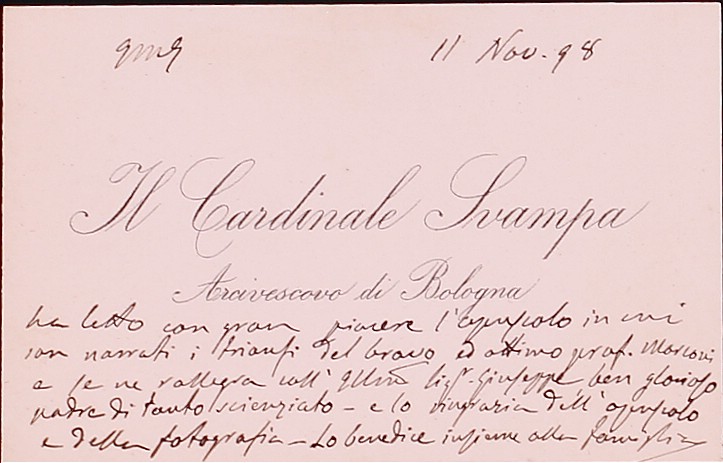 11 Nov. 98
Il Cardinale Svampa
Arcivescovo di Bologna
ha letto con gran piacere l'opuscolo in cui
son narrati i trionfi del bravo ed ottimo prof. Marconi
e se ne rallegra coll' Illmo Sigr. Giuseppe ben glorioso
padre di tanto scienziato – e lo ringrazia dell'opuscolo
e della fotografia – Lo benedice insieme alla famiglia